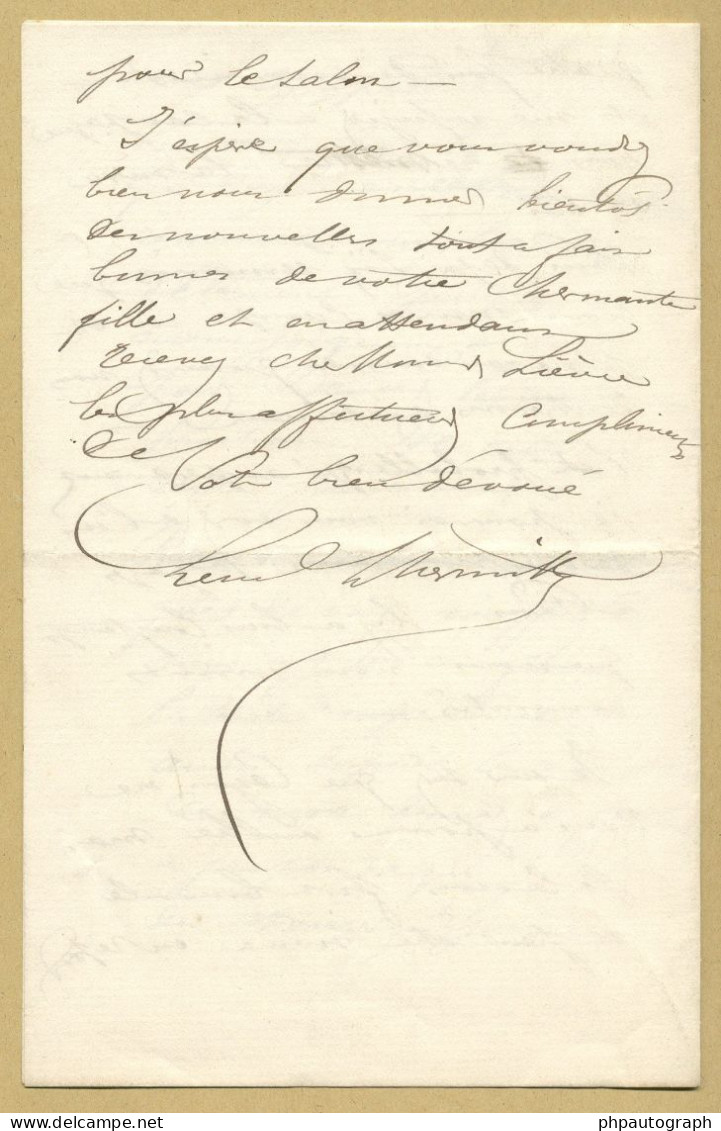 pour le Salon —
J'espère que vous voudrez
bien nous donner bientôt
des nouvelles tout a fait
bonnes de votre charmante
fille et en attendant
recevez cher Monsr Lièvre
les plus affectueux compliments
de
Votre bien dévoué
Lhermitte
phpautograph